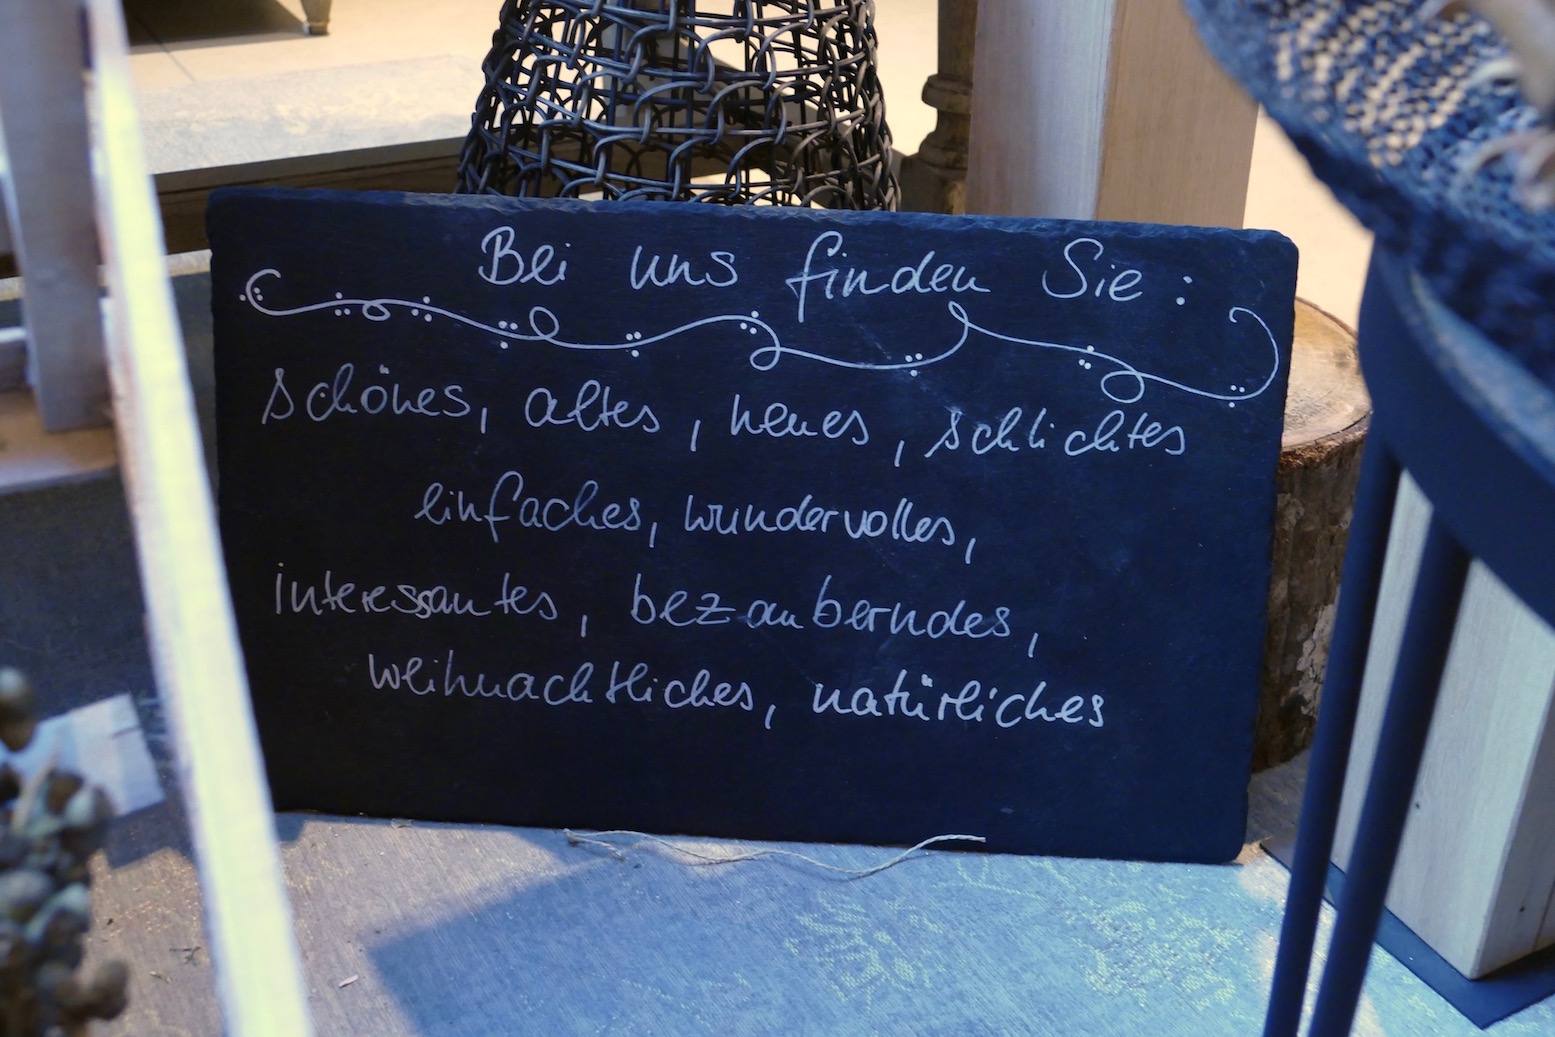 Bei uns finden Sie:
schönes, altes, neues, schlichtes
einfaches, wundervolles,
interessantes, bezauberndes,
weihnachtliches, natürliches